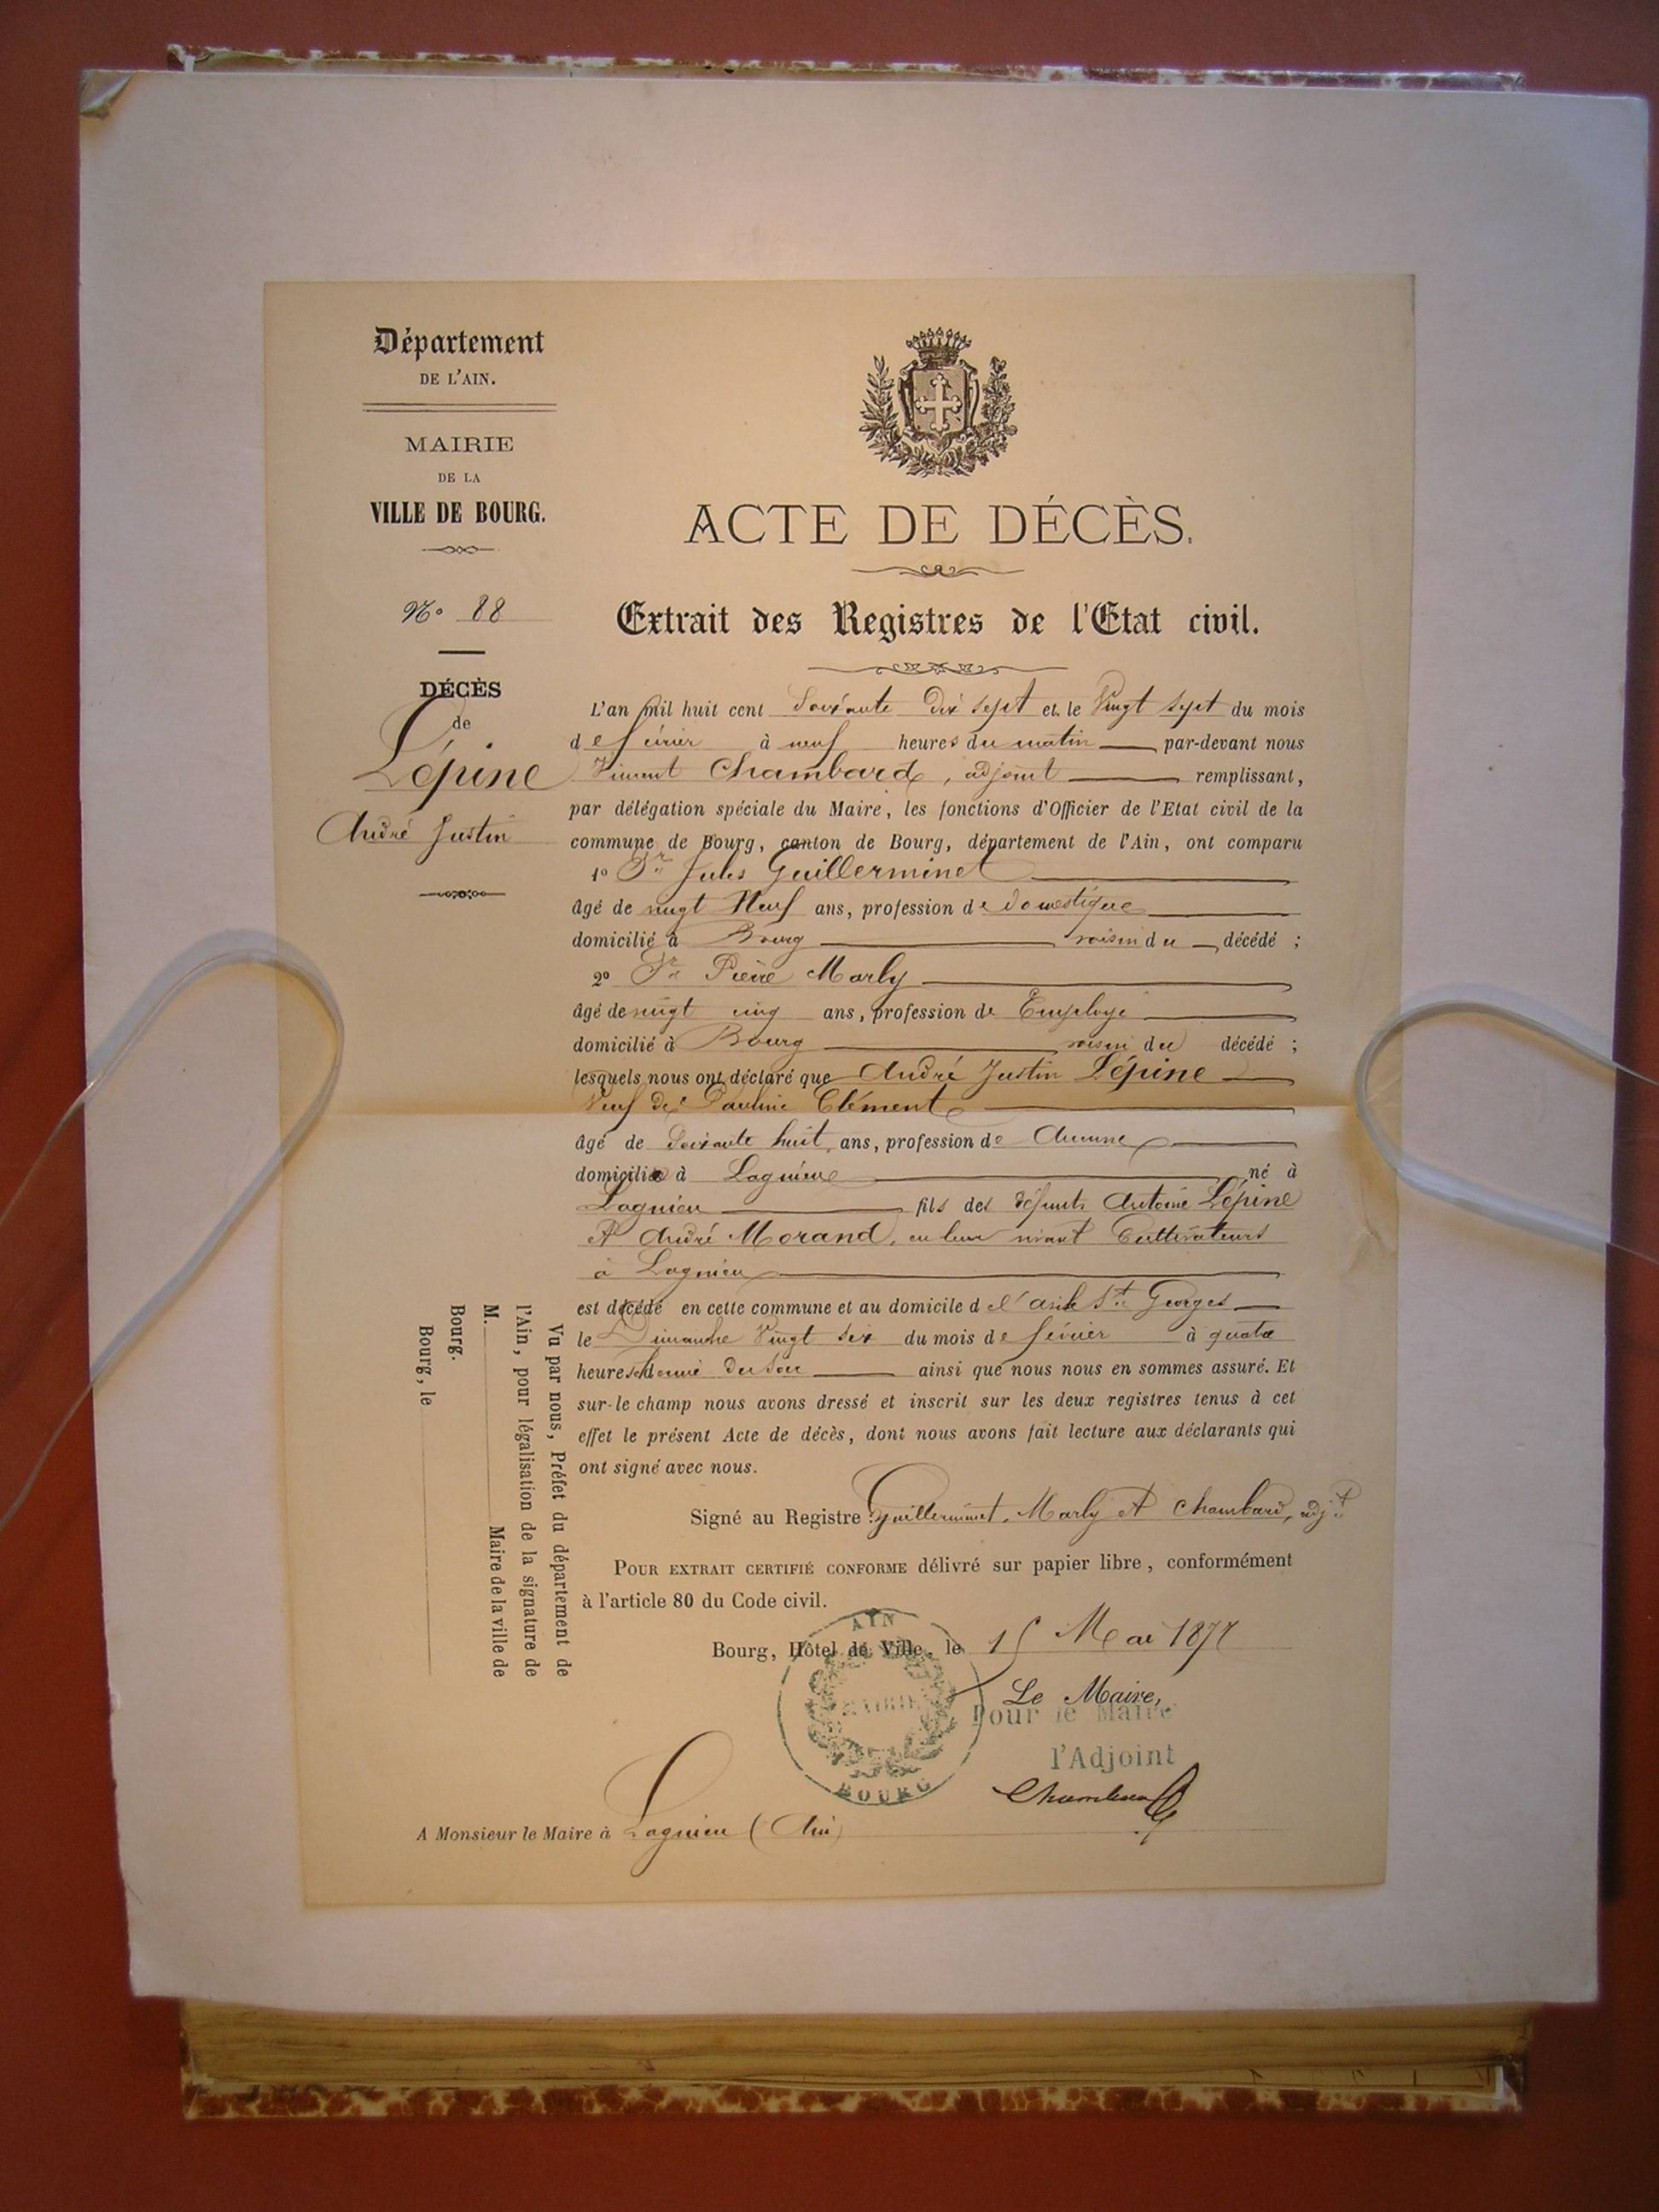 Département
DE L'AIN.
MAIRIE
DE LA
VILLE DE BOURG.
N° 88
DÉCÈS
de
Lépine
André Justin
ACTE DE DÉCÈS.
Extrait des Registres de l'Etat civil.
L'an mil huit cent Soixante Dix sept et le Vingt sept du mois
de février à neuf heures du matin par-devant nous
Vincent Chambard, adjoint remplissant,
par délégation spéciale du Maire, les fonctions d'Officier de l'Etat civil de la
commune de Bourg, canton de Bourg, département de l'Ain, ont comparu
1° Sr Jules Guillerminet
âgé de vingt Neuf ans, profession de domestique
domicilié à Bourg voisin du décédé ;
2° Sr Pierre Marly
âgé de vingt cinq ans, profession de Employé
domicilié à Bourg voisin du décédé ;
lesquels nous ont déclaré que André Justin Lépine
Veuf de Pauline Clément
âgé de Soixante huit ans, profession de Aucune
domicilié à Lagnieu né à
Lagnieu fils des défunts Antoine Lépine
et André Morand, en leur vivant Cultivateurs
à Lagnieu
est décédé en cette commune et au domicile de l'asile St Georges
le Dimanche Vingt six du mois de février à quatre
heures et demie du soir ainsi que nous nous en sommes assuré. Et
sur-le champ nous avons dressé et inscrit sur les deux registres tenus à cet
effet le présent Acte de décès, dont nous avons fait lecture aux déclarants qui
ont signé avec nous.
Signé au Registre : Guillerminet, Marly et Chambard, adjt
POUR EXTRAIT CERTIFIÉ CONFORME délivré sur papier libre, conformément
à l'article 80 du Code civil.
Bourg, Hôtel de Ville, le 15 Mai 1877
Le Maire,
Pour le Maire
l'Adjoint
Chambard
AIN
MAIRIE
BOURG
A Monsieur le Maire à Lagnieu (Ain)
Vu par nous, Préfet du département de
l'Ain, pour légalisation de la signature de
M. Maire de la ville de
Bourg.
Bourg, le